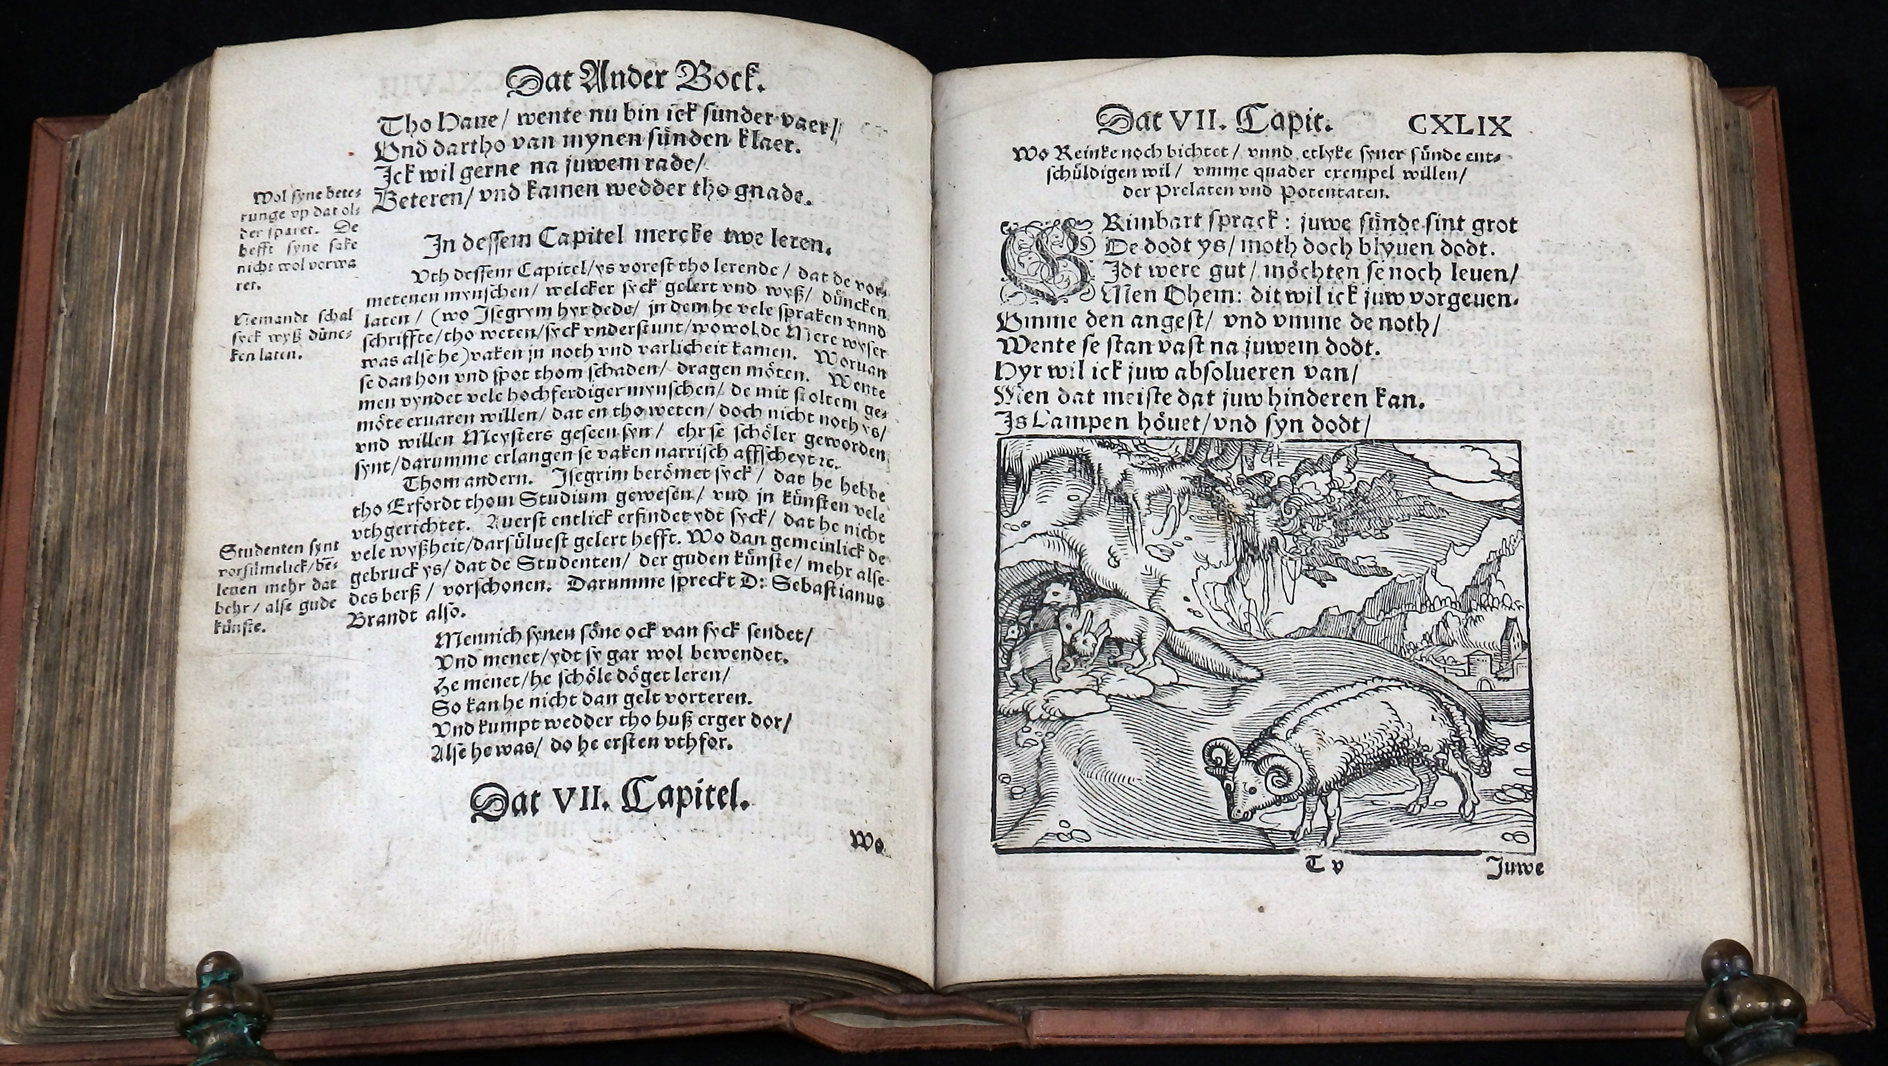 Dat Ander Bock.
Tho Haue/ wente nu bin ick sunder vaer/
Vnd dartho van mynen sünden klaer.
Ick wil gerne na juwem rade/
Beteren/ vnd kamen wedder tho gnade.
Wol syne bete-
runge vp dat ol-
der sparet. De
hefft syne sake
nicht wol vorwa
ret.
In dessem Capitel mercke twe leren.
Vth dessem Capitel/ ys vorest tho lerende/ dat de vor-
metenen mynschen/ welcker syck gelert vnd wyß/ düncken
laten/ (wo Isegrym hyr dede/ jn dem he vele spraken vnnd
schriffte/ tho weten/ syck vnderstunt/ wowol de Mere wyser
was alse he) vaken jn noth vnd varlicheit kamen. Woruan
se dan hon vnd spot thom schaden/ dragen möten. Wente
men vyndet vele hochferdiger mynschen/ de mit stoltem ge-
möte eruaren willen/ dat en tho weten/ doch nicht noth ys/
vnd willen Meysters geseen syn/ ehr se schöler geworden
synt/ darumme erlangen se vaken narrisch affscheyt ꝛc.
Nemandt schal
syck wyß dünc-
ken laten.
Thom andern. Isegrim berömet syck/ dat he hebbe
tho Erfordt thom Studium gewesen/ vnd jn künsten vele
vthgerichtet. Auerst entlick erfindet ydt syck/ dat he nicht
vele wyßheit/ darsüluest gelert hefft. Wo dan gemeinlick de
gebruck ys/ dat de Studenten/ der guden künste/ mehr alse
des berß/ vorschonen. Darumme spreckt D: Sebastianus
Brandt also.
Studenten synt
vorsümelick/ be-
leuen mehr dat
behr/ alse gude
künste.
Mennich synen söne ock van syck sendet/
Vnd menet/ ydt sy gar wol bewendet.
He menet/ he schöle döget leren/
So kan he nicht dan gelt vorteren.
Vnd kumpt wedder tho huß erger dor/
Alse he was/ do he ersten vthfor.
Dat VII. Capitel.
Wo
Dat VII. Capit. CXLIX
Wo Reinke noch bichtet/ vnnd etlyke syner sünde ent-
schüldigen wil/ vmme quader exempel willen/
der Prelaten vnd Potentaten.
GRimbart sprack: juwe sünde sint grot
De dodt ys/ moth doch blyuen dodt.
Idt were gut/ möchten se noch leuen/
Men Ohem: dit wil ick juw vorgeuen.
Vmme den angest/ vnd vmme de noth/
Wente se stan vast na juwem dodt.
Hyr wil ick juw absolueren van/
Men dat meiste dat juw hinderen kan.
Is Lampen höuet/ vnd syn dodt/
T v
Juwe